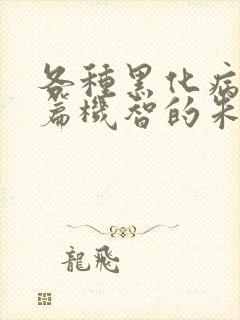 各種黑化病
篇機智的朱
龍飛